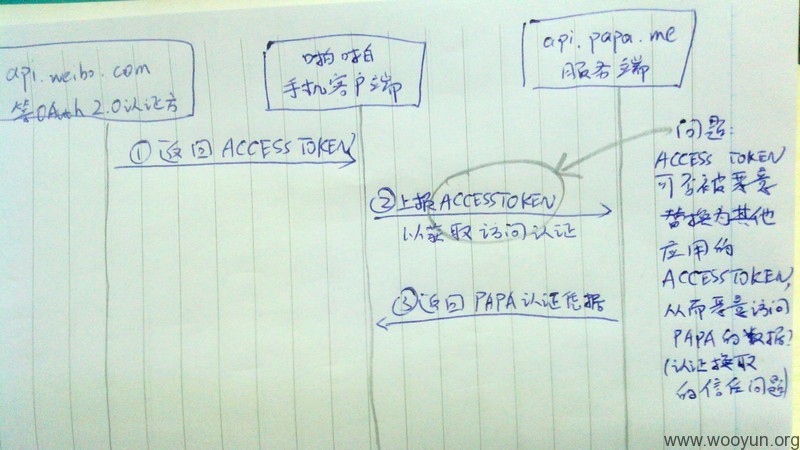 api.weibo.com
等OAuth 2.0认证方
啪啪
手机客户端
api.papa.me
服务端
①返回 ACCESS TOKEN
②上报ACCESSTOKEN
以获取访问认证
③返回 PAPA认证凭据
问题:
ACCESS TOKEN
可否被恶意
替换为其他
应用的
ACCESSTOKEN,
从而恶意访问
PAPA的数据?
(认证换取
的信任问题)
www.wooyun.org